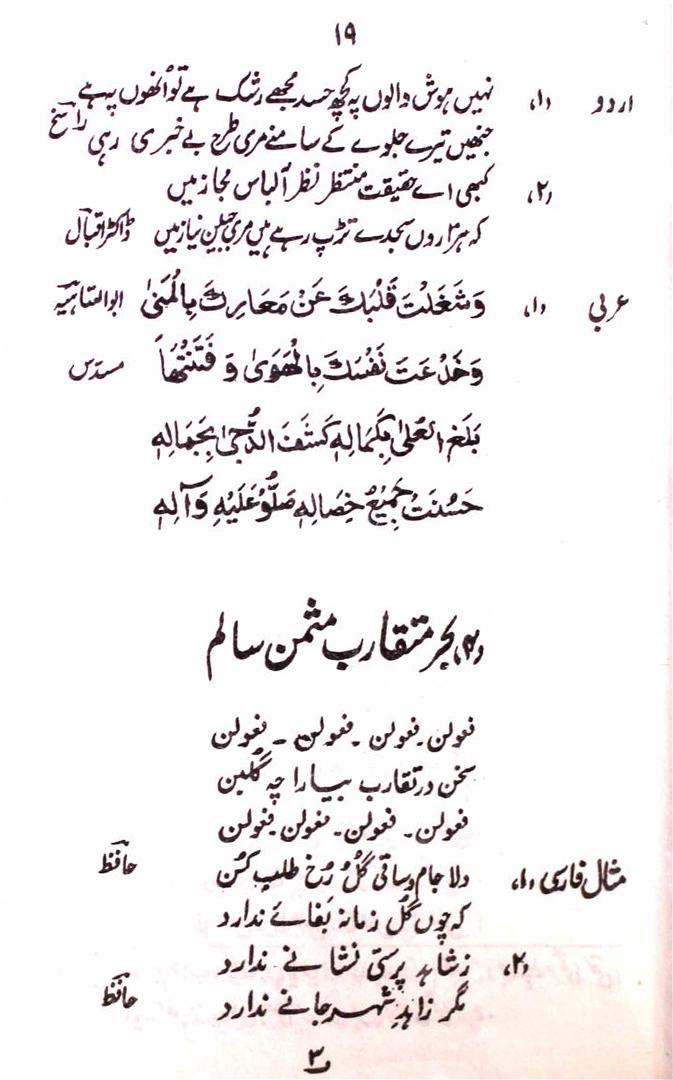 ۱۹
اردو (۱) نہیں ہوش والوں پہ کچھ حسد مجھے رشک ہے تو اُنھوں پہ ہے
جنھیں تیرے جلوے کے سامنے مری طرح بے خبری رہی راسخ
(۲) کبھی اے حقیقت منتظر نظر آ لباس مجاز میں
کہ ہزاروں سجدے تڑپ رہے ہیں مری جبین نیاز میں ڈاکٹر اقبال
عربی (۱) وَشَغَلْتَ قَلْبَكَ عَنْ مَعَادِكَ بِالْمُنىٰ ابو العتاہیہ
وَخَدَعْتَ نَفْسَكَ بِالْهَوىٰ وَ فَتَنْتَهَا مسدّس
بَلَغَ العُلىٰ بِكَمَالِهٖ كَشَفَ الدُّجىٰ بِجَمَالِهٖ
حَسُنَتْ جَمِيْعُ خِصَالِهٖ صَلُّوْ عَلَيْهِ وَآلِهٖ
(۲) بحر متقارب مثمن سالم
فعولن ۔ فعولن ۔ فعولن ۔ فعولن
سخن در تقارب بیارا چہ گلبن
فعولن ۔ فعولن ۔ فعولن ۔ فعولن
مثال فارسی (۱) دلا جام و ساقی گُل رُخ طلب کُن حافظ
کہ چوں گُل زمانہ بَقائے ندارد
(۲) ز شاہد پرستی نشانے ندارد
مگر زاہدِ شہر جانے ندارد حافظ
۳